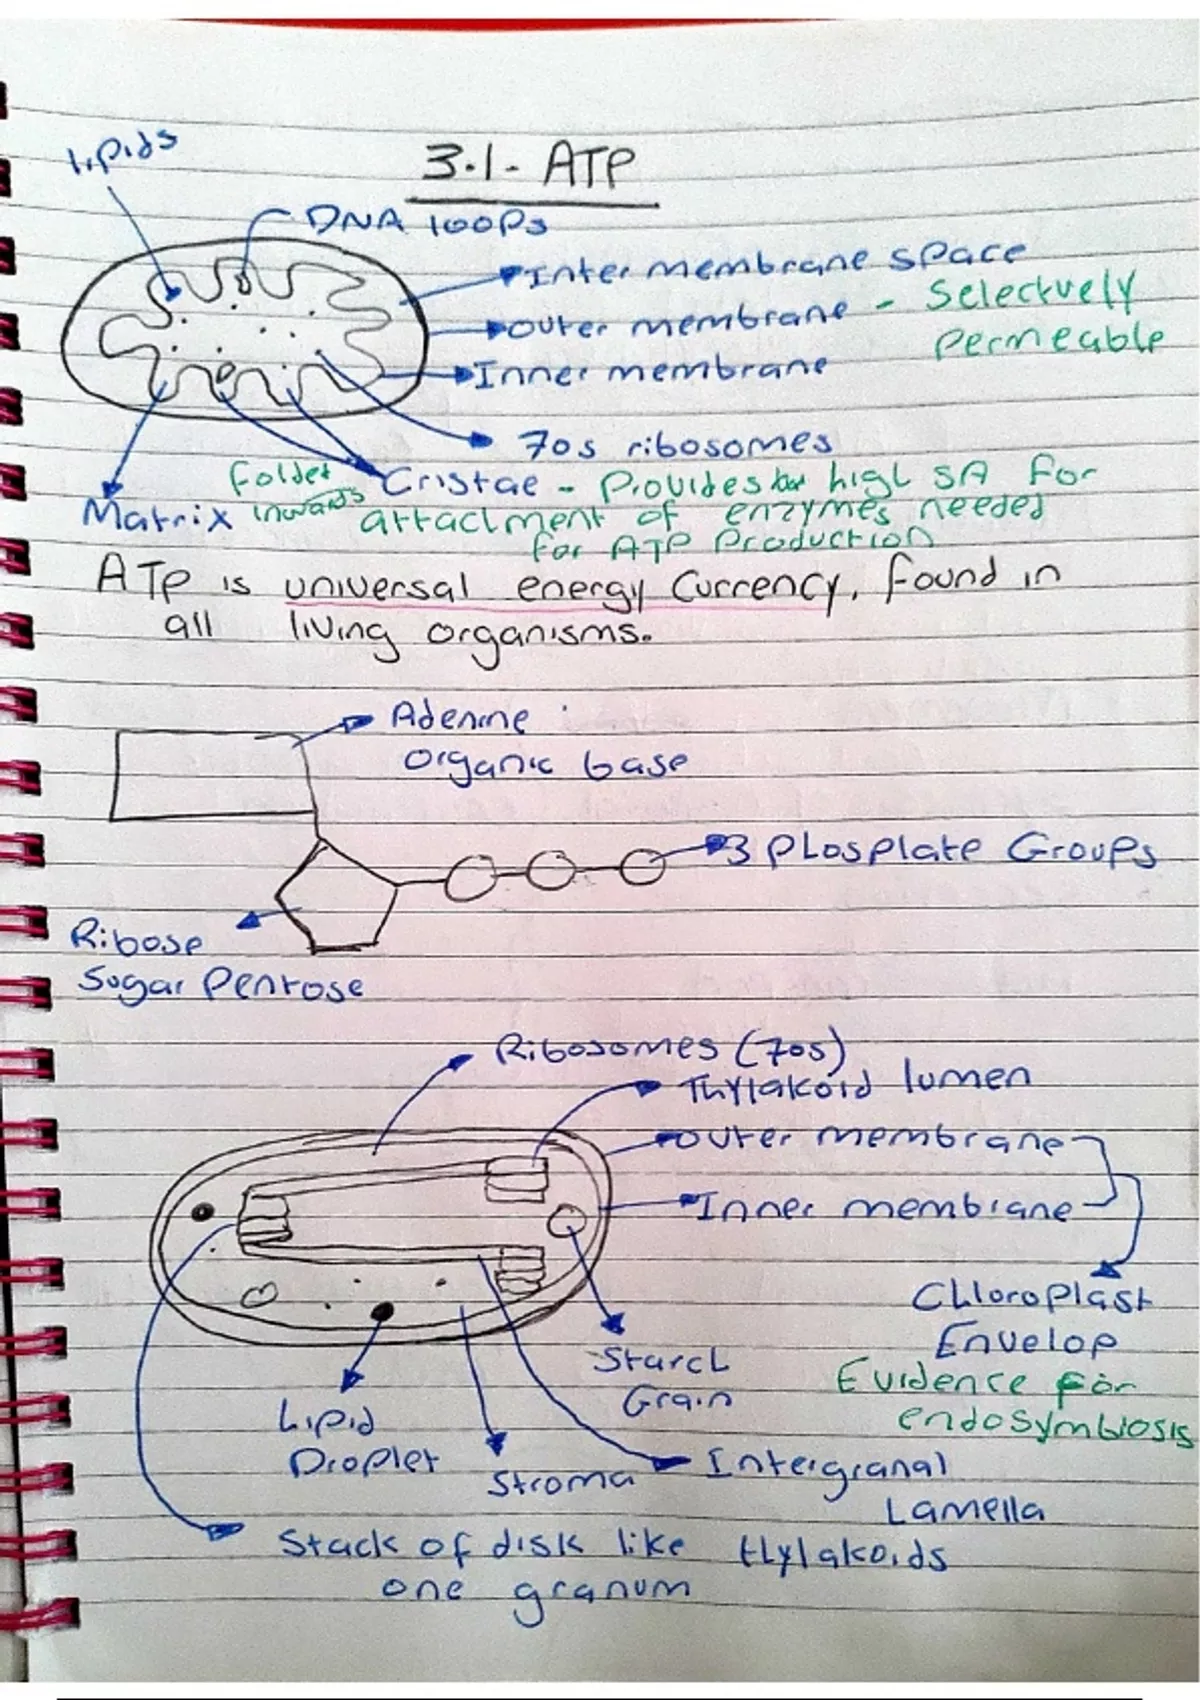 3.1- ATP
Lipids
DNA loops
Inter membrane space
outer membrane - Selectively
permeable
Inner membrane
70s ribosomes
Folded
inwards
Cristae - Provides high SA for
attachment of enzymes needed
for ATP Production
Matrix
ATP is universal energy currency, found in
all living organisms.
Adenine
organic base
3 Phosphate Groups
Ribose
Sugar Pentose
Ribosomes (70s)
Thylakoid lumen
outer membrane
Inner membrane
Chloroplast
Envelop
Evidence for
endosymbiosis
Starch
Grain
Lipid
Droplet
Stroma
Intergranal
Lamella
Stack of disk like thylakoids
one granum